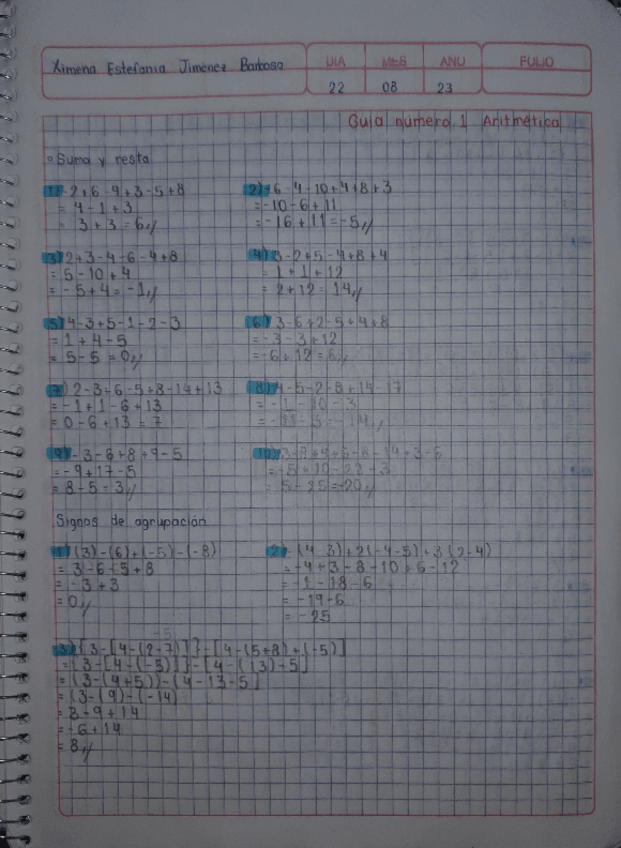 Ximena Estefania Jimenez Barbosa
DIA MES AÑO FOLIO
22 08 23
Guia numero 1 Aritmética
Suma y resta
1) -2+6-4+3-5+8
= 4-1+3
= 3+3=6//
2) -6-4-10+4+8+3
=-10-6+11
=-16+11=-5//
3) 2+3-4-6-4+8
= 5-10+4
= -5+4=-1//
4) 3-2+5-4+8+4
= 1+1+12
= 2+12=14//
5) 4-3+5-1-2-3
= 1+4-5
= 5-5=0//
6) 3-6+2-5+4+8
=-3-3+12
=-6+12=6//
7) 2-3+6-5+8-14+13
= -1+1-6+13
= 0-6+13=7
8) 4-5-2-8+14-17
= -1-10-3
= -11-3=-14//
9) -3-6+8+9-5
= -9+17-5
= 8-5=3//
10)
= 5-25=-20//
Signos de agrupación
1) (3)-(6)+(-5)-(-8)
= 3-6-5+8
= -3+3
= 0//
2) -(4-3)+2(-4-5)+3(2-4)
= -4+3-8-10+6-12
= -1-18-6
= -19-6
= -25
3) {3-[4-(2-7)]}-[4-(5+8)+(-5)]
= {3-[4-(-5)]}-[4-(13)-5]
= (3-(4+5))-(4-13-5]
= (3-(9)-(-14)
= 3-9+14
= -6+14
= 8//